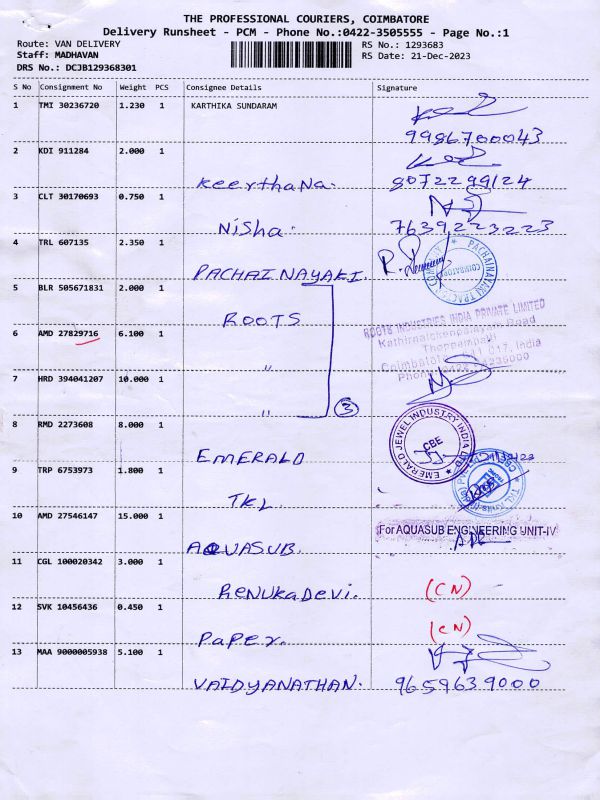 THE PROFESSIONAL COURIERS, COIMBATORE
Delivery Runsheet - PCM - Phone No.:0422-3505555 - Page No.:1
Route: VAN DELIVERY RS No.: 1293683
Staff: MADHAVAN RS Date: 21-Dec-2023
DRS No.: DCJB129368301
S No Consignment No Weight PCS Consignee Details Signature
1 TMI 30236720 1.230 1 KARTHIKA SUNDARAM
9986700043
2 KDI 911284 2.000 1
Keerthana. 8072299124
3 CLT 30170693 0.750 1
Nisha. 7639223223
4 TRL 607135 2.350 1
PACHAI NAYAKI.
5 BLR 505671831 2.000 1
ROOTS
ROOTS INDUSTRIES INDIA PRIVATE LIMITED
Kathirnaickenpalayam Road
Thoppampatti
6 AMD 27829716 6.100 1
"
7 HRD 394041207 10.000 1
" 3
8 RMD 2273608 8.000 1
EMERALD JEWEL INDUSTRY INDIA LTD
CBE
EMERALD
9 TRP 6753973 1.800 1
TKL
10 AMD 27546147 15.000 1
For AQUASUB ENGINEERING UNIT-IV
AQUASUB.
11 CGL 100020342 3.000 1
Renukadevi. (CN)
12 SVK 10456436 0.450 1
Paper. (CN)
13 MAA 9000005938 5.100 1
VAIDYANATHAN. 9659639000